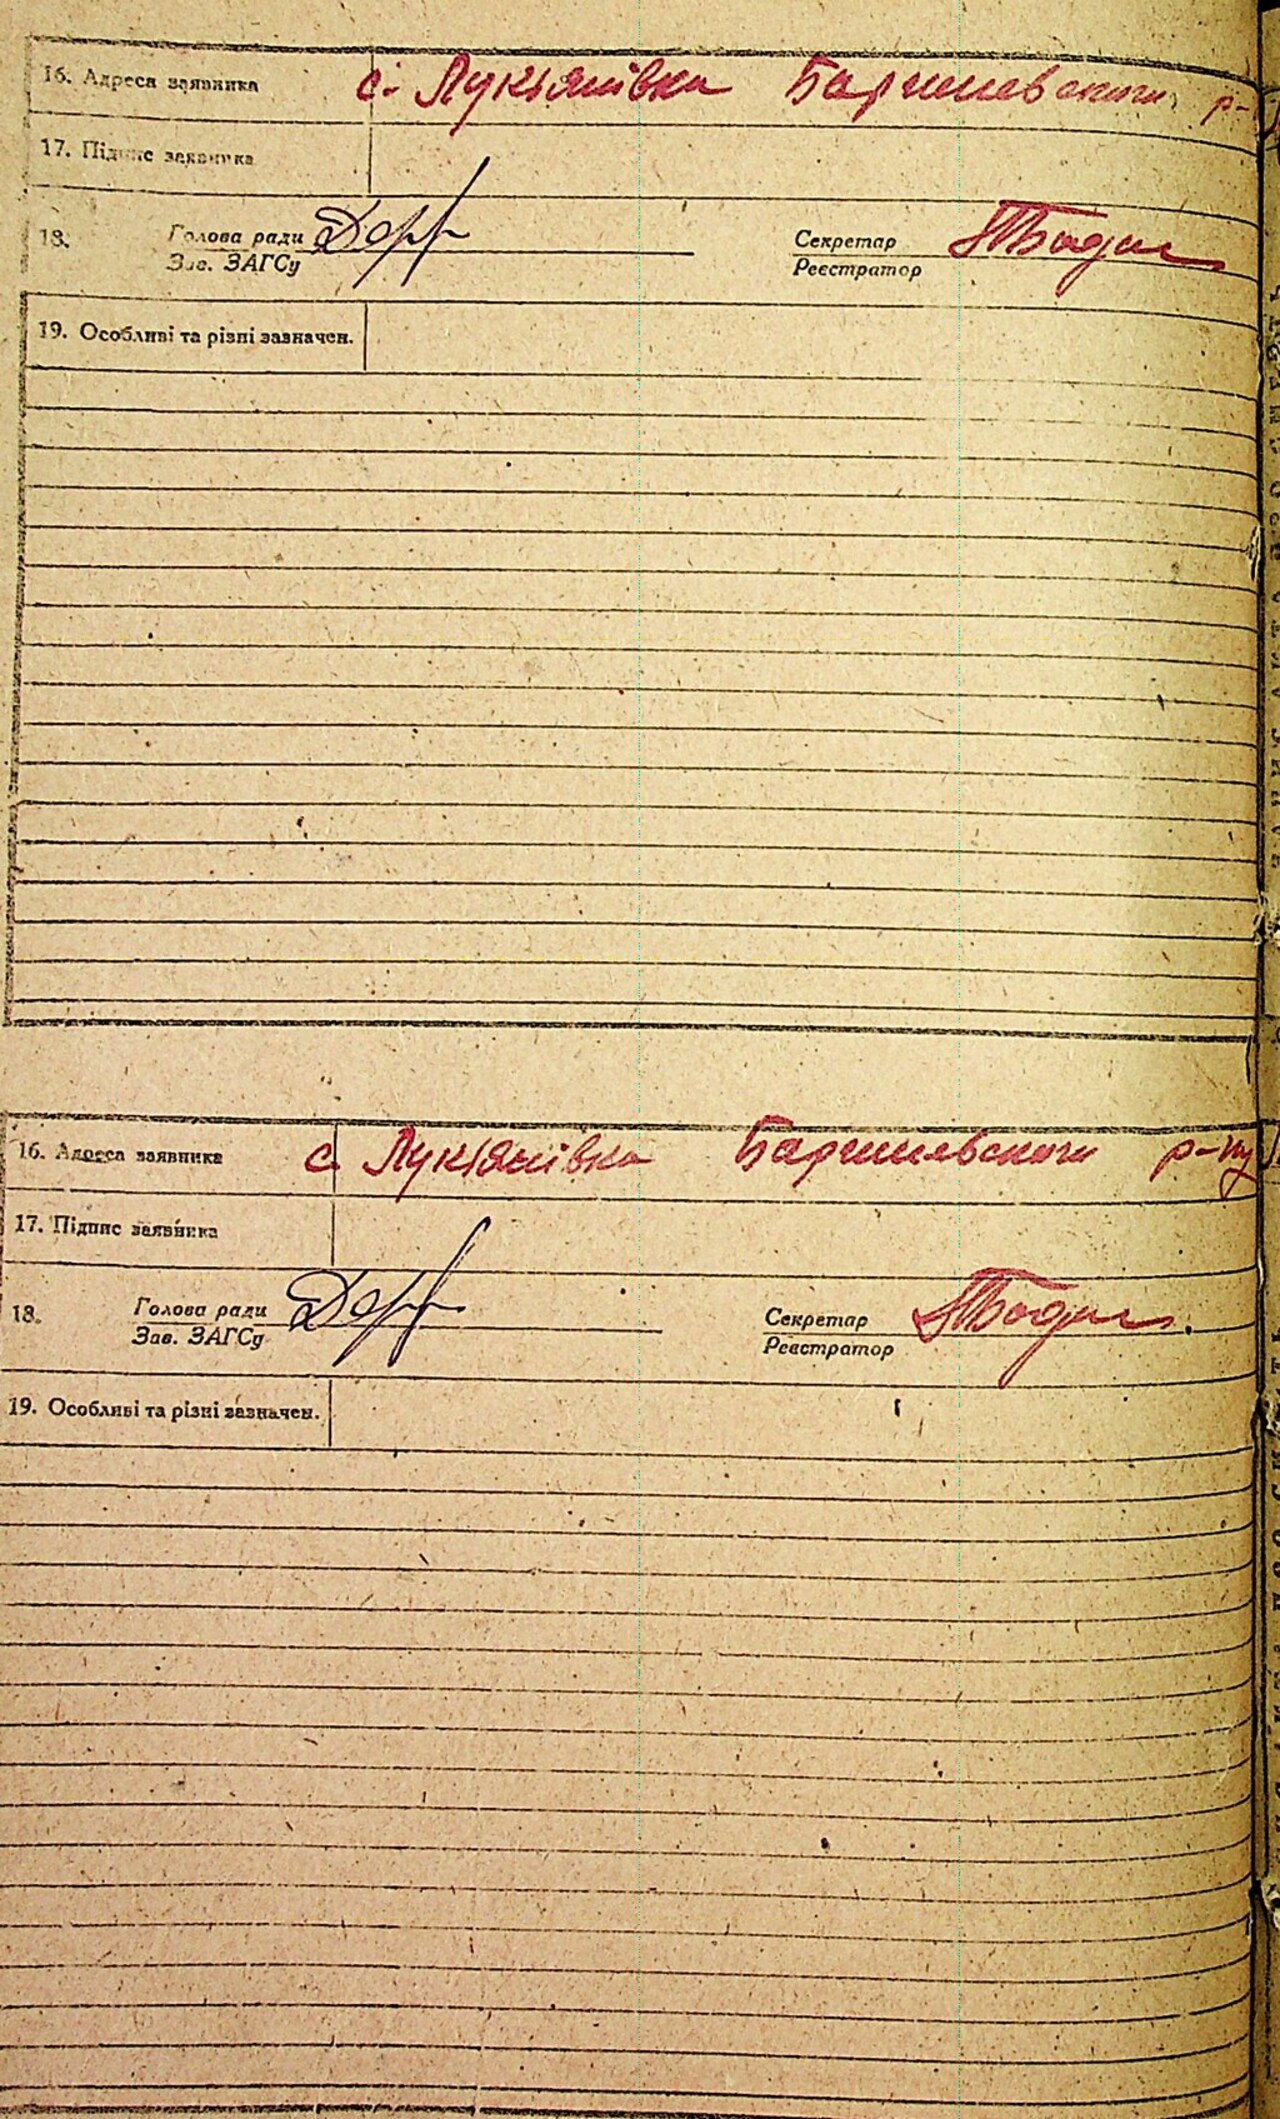 16. Адреса заявника с. Лукьянівка Баришевського р-
17. Підпис заявника
18. Голова ради Секретар
Зав. ЗАГСу Реєстратор
19. Особливі та різні зазначен.
16. Адреса заявника с. Лукьянівка Баришевського р-ну
17. Підпис заявника
18. Голова ради Секретар
Зав. ЗАГСу Реєстратор
19. Особливі та різні зазначен.